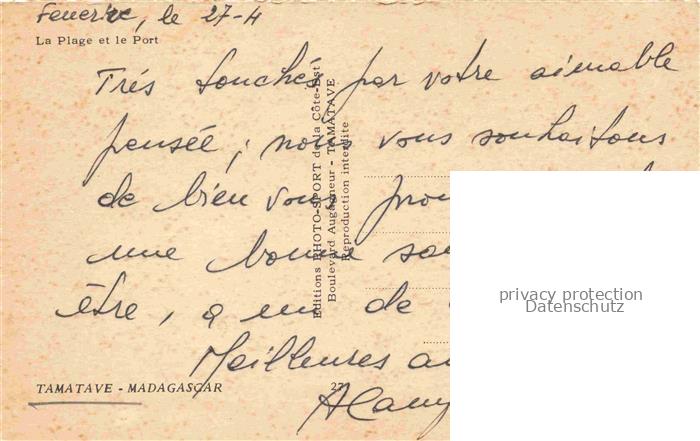 Fenerive, le 27-4
La Plage et le Port
Trés touchés par votre aimable
pensée, nous vous souhaitons
de bien vous
une bonne
être, a un de
Meilleures
Editions PHOTO-SPORT de la Côte-Est
Boulevard Augagneur - TAMATAVE
Reproduction interdite
TAMATAVE - MADAGASCAR
27
privacy protection
Datenschutz